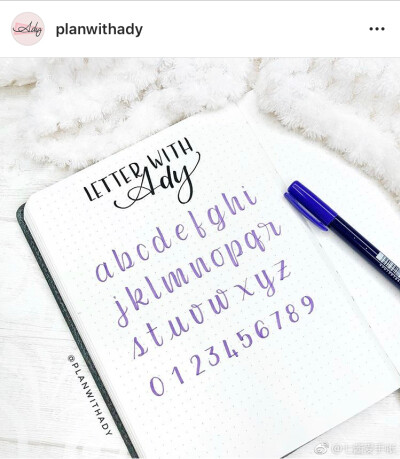 planwithady
LETTER WITH
Ady
abcdefghi
jklmnopqr
stuvwxyz
0123456789
@PLANWITHADY